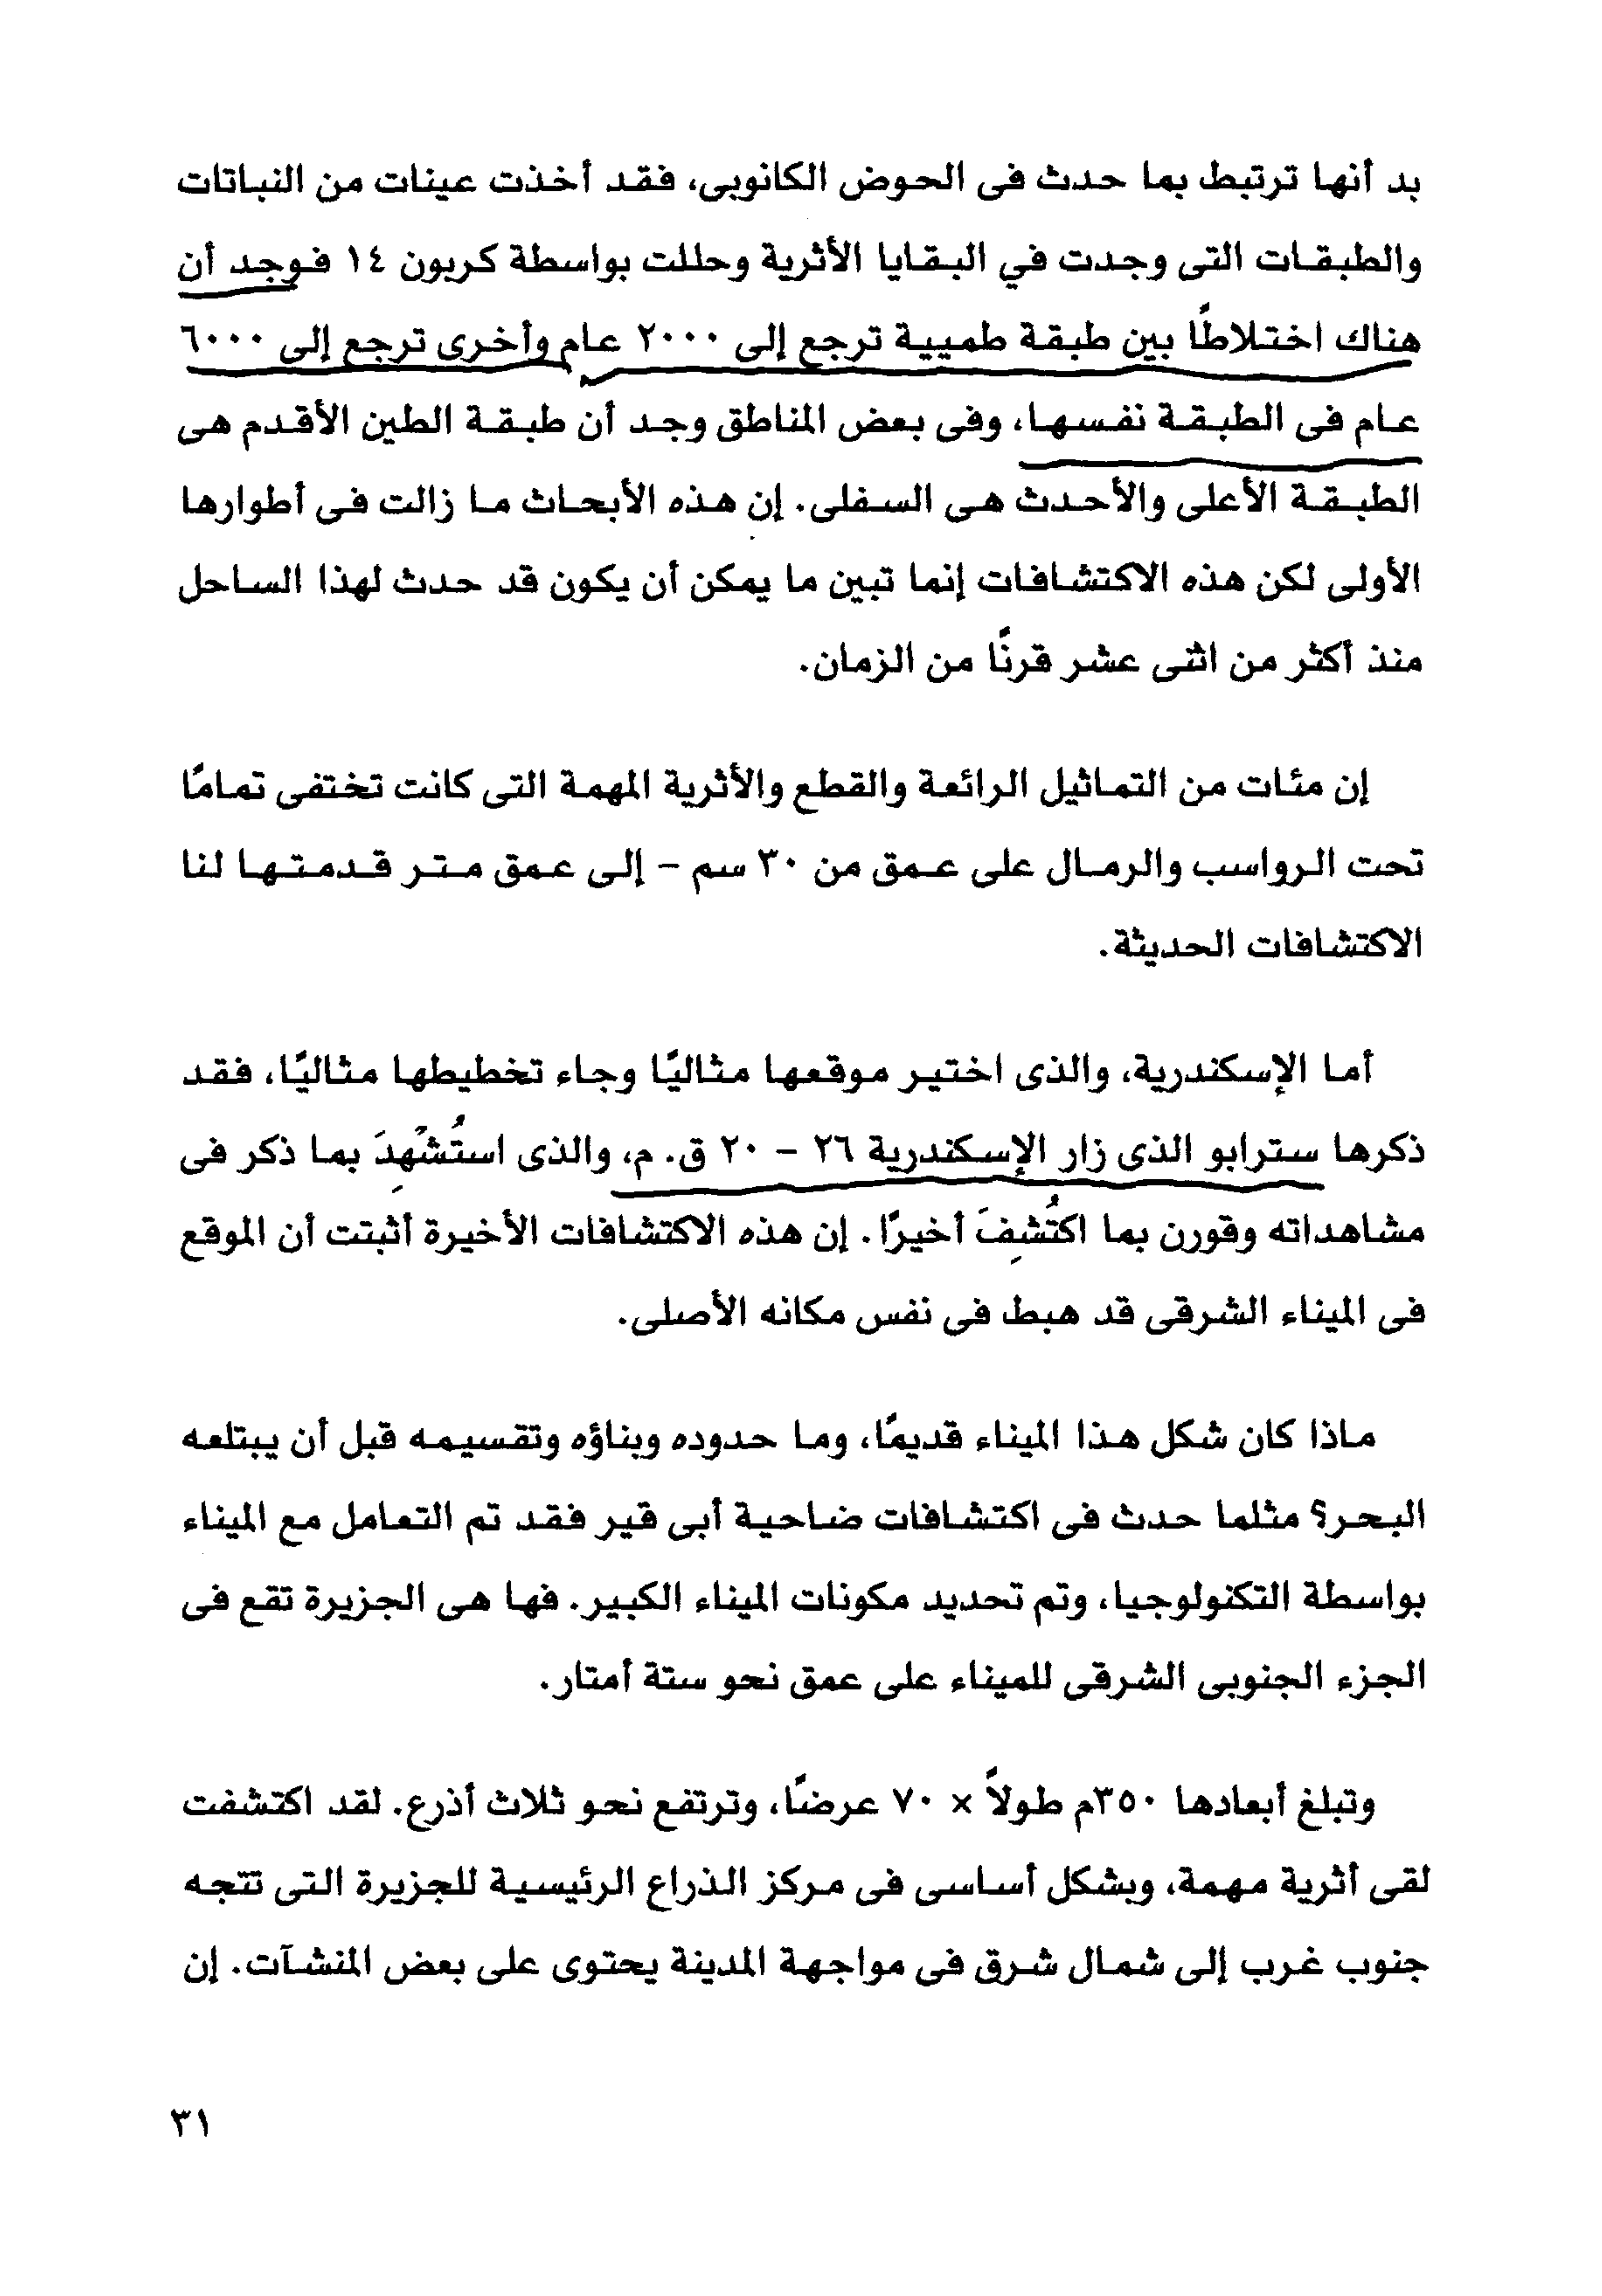 بد أنها ترتبط بما حدث فى الحوض الكانوبى، فقد أخذت عينات من النباتات
والطبقات التى وجدت في البقايا الأثرية وحللت بواسطة كربون ١٤ فوجد أن
هناك اختلاطًا بين طبقة طميية ترجع إلى ٢٠٠٠ عام وأخرى ترجع إلى ٦٠٠٠
عام فى الطبقة نفسها، وفى بعض المناطق وجد أن طبقة الطين الأقدم هى
الطبقة الأعلى والأحدث هى السفلى. إن هذه الأبحاث ما زالت فى أطوارها
الأولى لكن هذه الاكتشافات إنما تبين ما يمكن أن يكون قد حدث لهذا الساحل
منذ أكثر من اثنى عشر قرنًا من الزمان.
إن مئات من التماثيل الرائعة والقطع والأثرية المهمة التى كانت تختفى تمامًا
تحت الرواسب والرمال على عمق من ٣٠ سم – إلى عمق متر قدمتها لنا
الاكتشافات الحديثة.
أما الإسكندرية، والذى اختير موقعها مثاليًا وجاء تخطيطها مثاليًا، فقد
ذكرها سترابو الذى زار الإسكندرية ٢٦ – ٢٠ ق. م، والذى استُشْهِدَ بما ذكر فى
مشاهداته وقورن بما اكتُشِفَ أخيرًا. إن هذه الاكتشافات الأخيرة أثبتت أن الموقع
فى الميناء الشرقى قد هبط فى نفس مكانه الأصلى.
ماذا كان شكل هذا الميناء قديمًا، وما حدوده وبناؤه وتقسيمه قبل أن يبتلعه
البحر؟ مثلما حدث فى اكتشافات ضاحية أبى قير فقد تم التعامل مع الميناء
بواسطة التكنولوجيا، وتم تحديد مكونات الميناء الكبير. فها هى الجزيرة تقع فى
الجزء الجنوبى الشرقى للميناء على عمق نحو ستة أمتار.
وتبلغ أبعادها ٣٥٠م طولاً × ٧٠ عرضًا، وترتفع نحو ثلاث أذرع. لقد اكتشفت
لقى أثرية مهمة، وبشكل أساسى فى مركز الذراع الرئيسية للجزيرة التى تتجه
جنوب غرب إلى شمال شرق فى مواجهة المدينة يحتوى على بعض المنشآت. إن
٣١